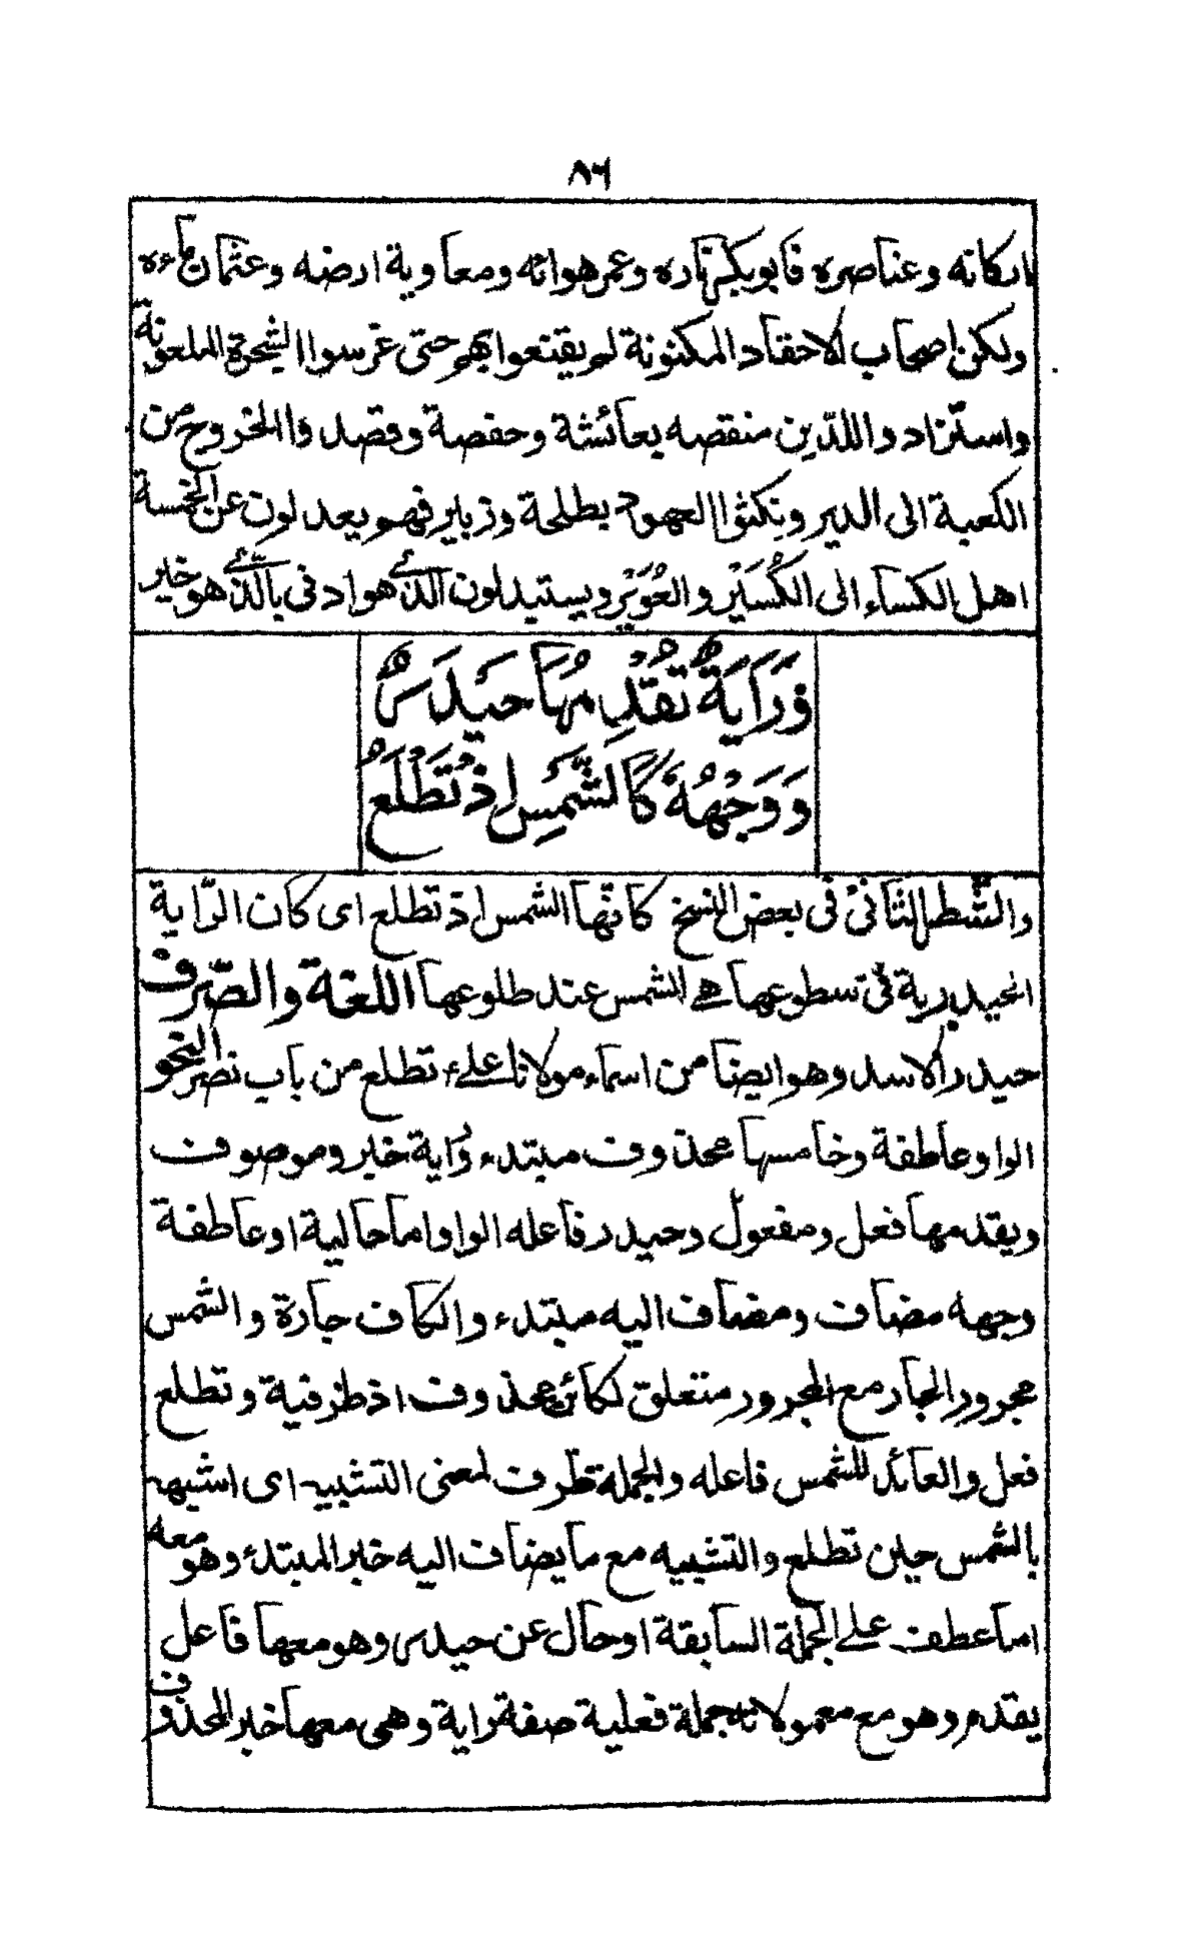 ٨٦
باركانه وعناصره فابوبكر ناره وعمر هوائه ومعاوية ارضه وعثمان ماءه
ولكن اصحاب الاحقاد المكنونة لم يقنعوا بهم حتى غرسوا الشجرة الملعونة
واستزادوا اللذين منقصه بعائشة وحفصة وقصدوا الخروج من
الكعبة الى الدير ونكثوا العهود بطلحة وزبير فهو يعدلون عن الخمسة
اهل الكساء الى الكُسَيْر والعُوَيْر ويستبدلون الذي هو ادنى بالّذي هو خير
وَرَايَةٌ تَقَدَّمُهَا حَيْدَرٌ
وَوَجْهُهُ كَالشَّمْسِ اِذْ تَطْلَعُ
والشّطر الثّانى فى بعض النسخ كانّها الشمس اذ تطلع اى كان الرّاية
الحيدرية فى سطوعها هي الشمس عند طلوعها اللغة والصّرف
حيدر الاسد وهو ايضا من اسماء مولانا علىء تطلع من باب نصر النحو
الواو عاطفة وخامسها محذوف مبتدء وراية خبر وموصوف
ويقدمها فعل ومفعول وحيدر فاعله الواو اما حالية او عاطفة
وجهه مضاف ومضاف اليه مبتدء والكاف جارة والشمس
مجرور الجار مع المجرور متعلق لكائن محذوف اذ ظرفية وتطلع
فعل والعائد للشمس فاعله والجملة ظرف لمعنى التشبيه اى اشبهه
بالشمس حين تطلع والتشبيه مع ما يضاف اليه خبر المبتدء وهو معه
اما عطف على الجملة السابقة او حال عن حيدر وهو معها فاعل
يقدم وهو مع معمولاته جملة فعلية صفة راية وهى معها خبر المحذوف